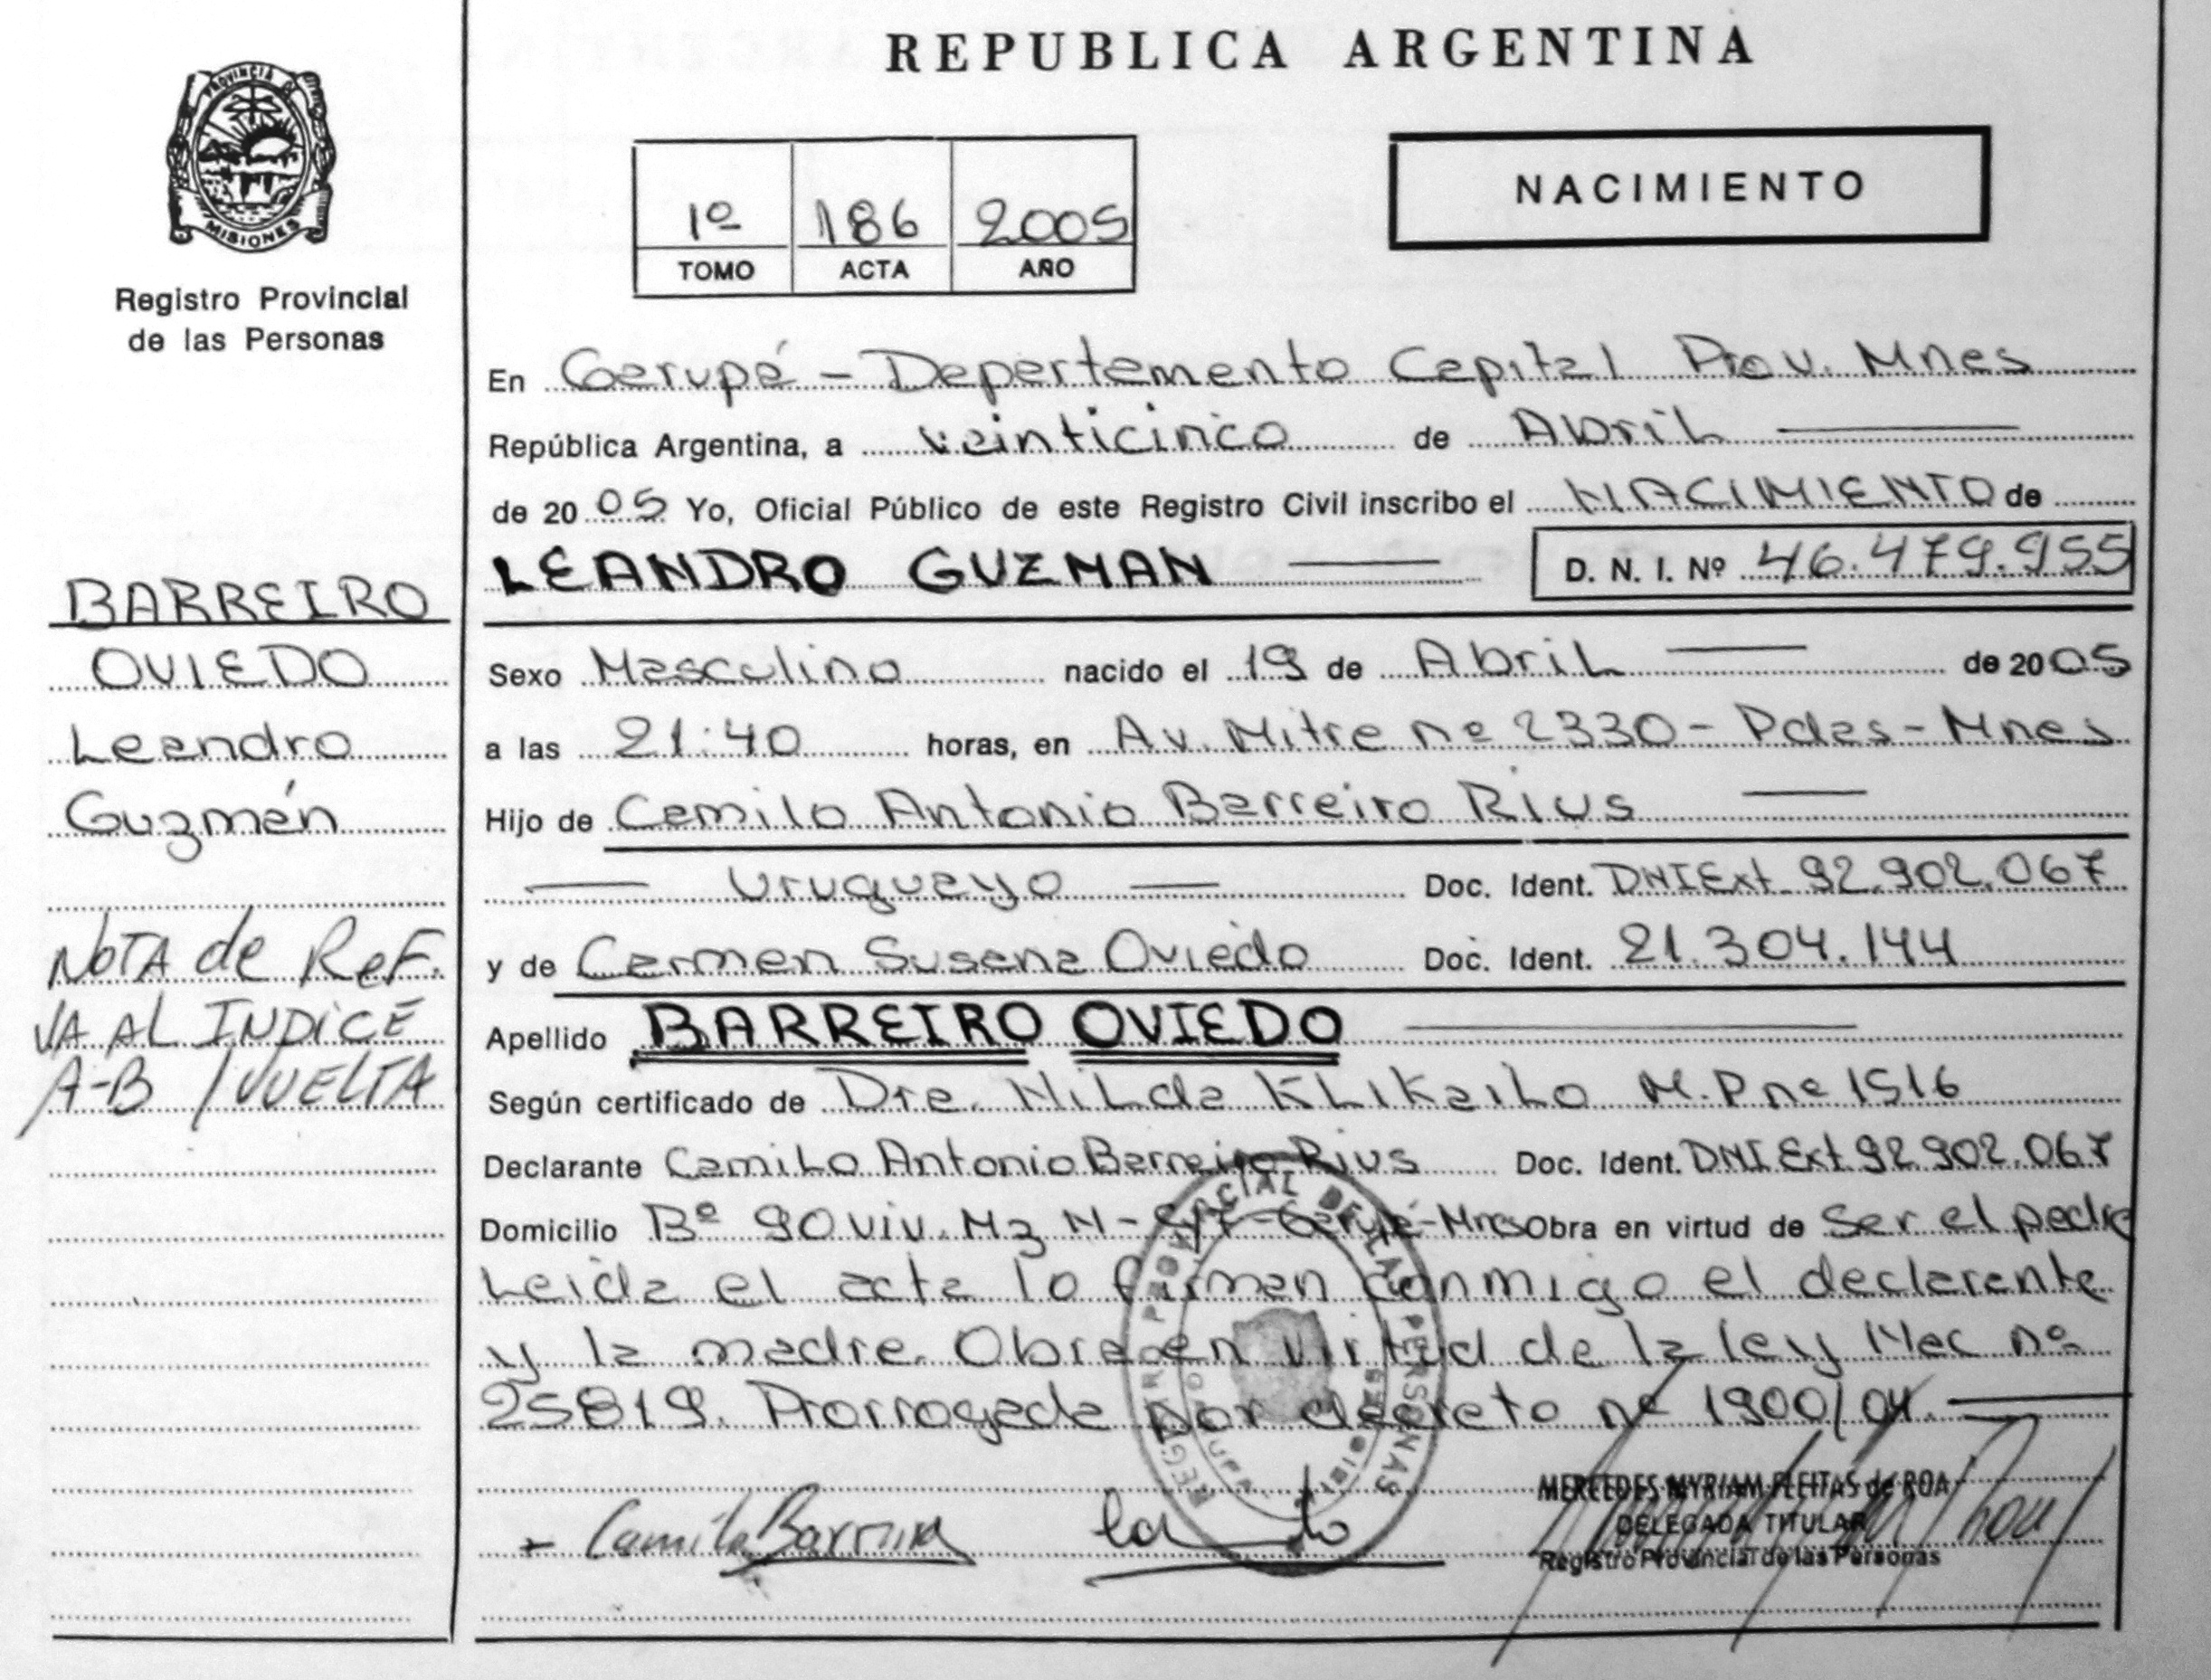 REPUBLICA ARGENTINA
PROVINCIA DE
MISIONES
Registro Provincial
de las Personas
1º 186 2005
TOMO ACTA AÑO
NACIMIENTO
En Garupá - Departamento Capital Prov. Mnes
República Argentina, a veinticinco de Abril
de 2005 Yo, Oficial Público de este Registro Civil inscribo el NACIMIENTO de
LEANDRO GUZMAN D. N. I. Nº 46.479.955
BARREIRO
OVIEDO
Leandro
Guzmán
NOTA de REF.
VA AL INDICE
A-B /VUELTA
Sexo Masculino nacido el 19 de Abril de 2005
a las 21:40 horas, en Av. Mitre nº 2330 - Pdas - Mnes
Hijo de Camilo Antonio Barreiro Rius
Uruguayo Doc. Ident. DNI Ext 92.902.067
y de Carmen Susana Oviedo Doc. Ident. 21.304.144
Apellido BARREIRO OVIEDO
Según certificado de Dra. Hilda Klikailo M.P nº 1516
Declarante Camilo Antonio Barreiro Rius Doc. Ident. DNI Ext 92.902.067
Domicilio Bº 90 viv. Mz N - Garupá - Mnes Obra en virtud de Ser el padre
Leida el acta lo firman conmigo el declarante
y la madre. Obra en virtud de la ley Nac nº
25819. Prorrogada por decreto nº 1900/04.
REGISTRO PROVINCIAL DE LAS PERSONAS
Camilo Barreiro
MERCEDES MYRIAM FLEITAS de ROA
DELEGADA TITULAR
Registro Provincial de las Personas